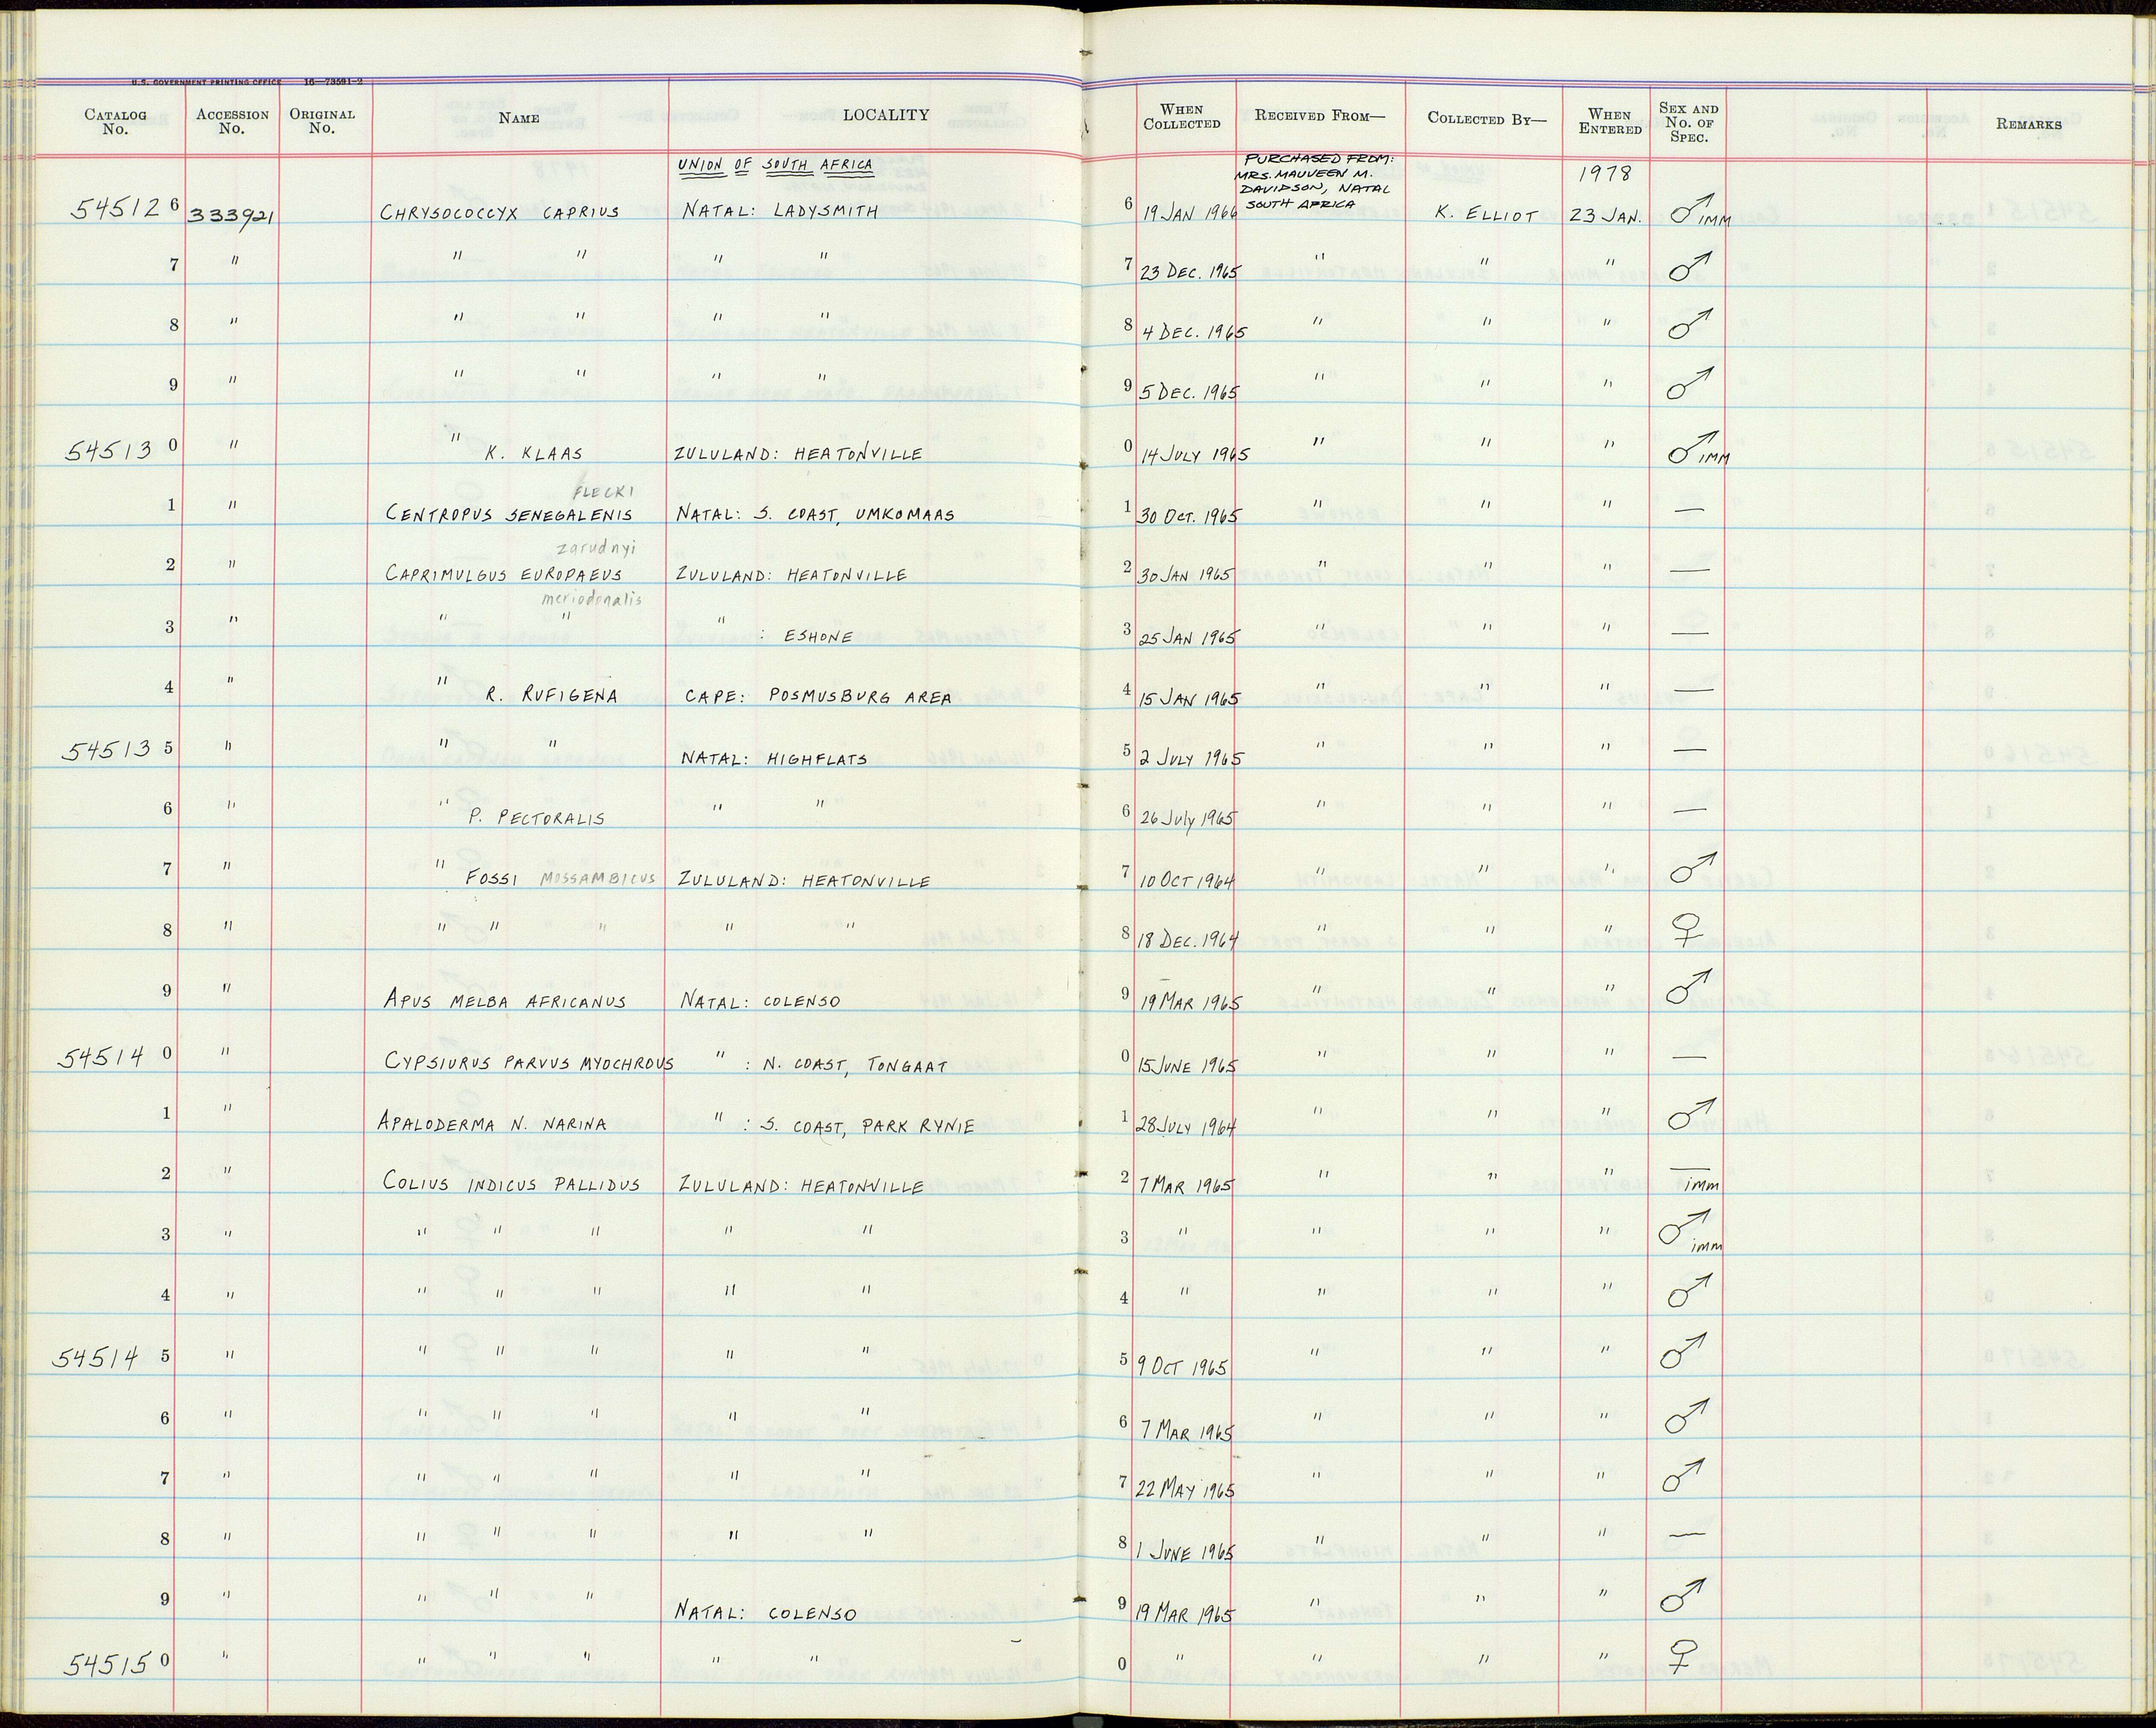 U.S. GOVERNMENT PRINTING OFFICE 16—73591-2
CATALOG No. ACCESSION No. ORIGINAL No. NAME LOCALITY WHEN COLLECTED RECEIVED FROM— COLLECTED BY— WHEN ENTERED SEX AND No. OF SPEC. REMARKS
UNION OF SOUTH AFRICA PURCHASED FROM: MRS. MAUVEEN M. DAVIDSON, NATAL SOUTH AFRICA 1978
54512 6 333921 CHRYSOCOCCYX CAPRIUS NATAL: LADYSMITH 6 19 JAN 1966 K. ELLIOT 23 JAN. ♂ IMM
7 " " " " " 7 23 DEC. 1965 " " " ♂
8 " " " " " 8 4 DEC. 1965 " " " ♂
9 " " " " " 9 5 DEC. 1965 " " " ♂
54513 0 " " K. KLAAS ZULULAND: HEATONVILLE 0 14 JULY 1965 " " " ♂ IMM
FLECKI
1 " CENTROPUS SENEGALENIS NATAL: S. COAST, UMKOMAAS 1 30 OCT. 1965 " " " —
zarudnyi
2 " CAPRIMULGUS EUROPAEUS ZULULAND: HEATONVILLE 2 30 JAN 1965 " " " —
meriodonalis
3 " " " " : ESHONE 3 25 JAN 1965 " " " —
4 " " R. RUFIGENA CAPE: POSMUSBURG AREA 4 15 JAN 1965 " " " —
54513 5 " " " NATAL: HIGHFLATS 5 2 JULY 1965 " " " —
6 " " P. PECTORALIS " " 6 26 July 1965 " " " —
7 " " FOSSI MOSSAMBICUS ZULULAND: HEATONVILLE 7 10 OCT 1964 " " " ♂
8 " " " " " " 8 18 DEC. 1964 " " " ♀
9 " APUS MELBA AFRICANUS NATAL: COLENSO 9 19 MAR 1965 " " " ♂
54514 0 " CYPSIURUS PARVUS MYOCHROUS " : N. COAST, TONGAAT 0 15 JUNE 1965 " " " —
1 " APALODERMA N. NARINA " : S. COAST, PARK RYNIE 1 28 JULY 1964 " " " ♂
2 " COLIUS INDICUS PALLIDUS ZULULAND: HEATONVILLE 2 7 MAR 1965 " " " — imm
3 " " " " " " 3 " " " " ♂ imm
4 " " " " " " 4 " " " " ♂
54514 5 " " " " " " 5 9 OCT 1965 " " " ♂
6 " " " " " " 6 7 MAR 1965 " " " ♂
7 " " " " " " 7 22 MAY 1965 " " " ♂
8 " " " " " " 8 1 JUNE 1965 " " " —
9 " " " " NATAL: COLENSO 9 19 MAR 1965 " " " ♂
54515 0 " " " " " " 0 " " " " ♀